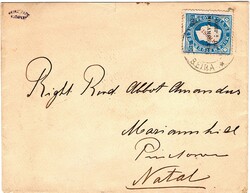 BEIRA
Right Revd Abbot Amandus
Mariannhill
Pinetown
Natal